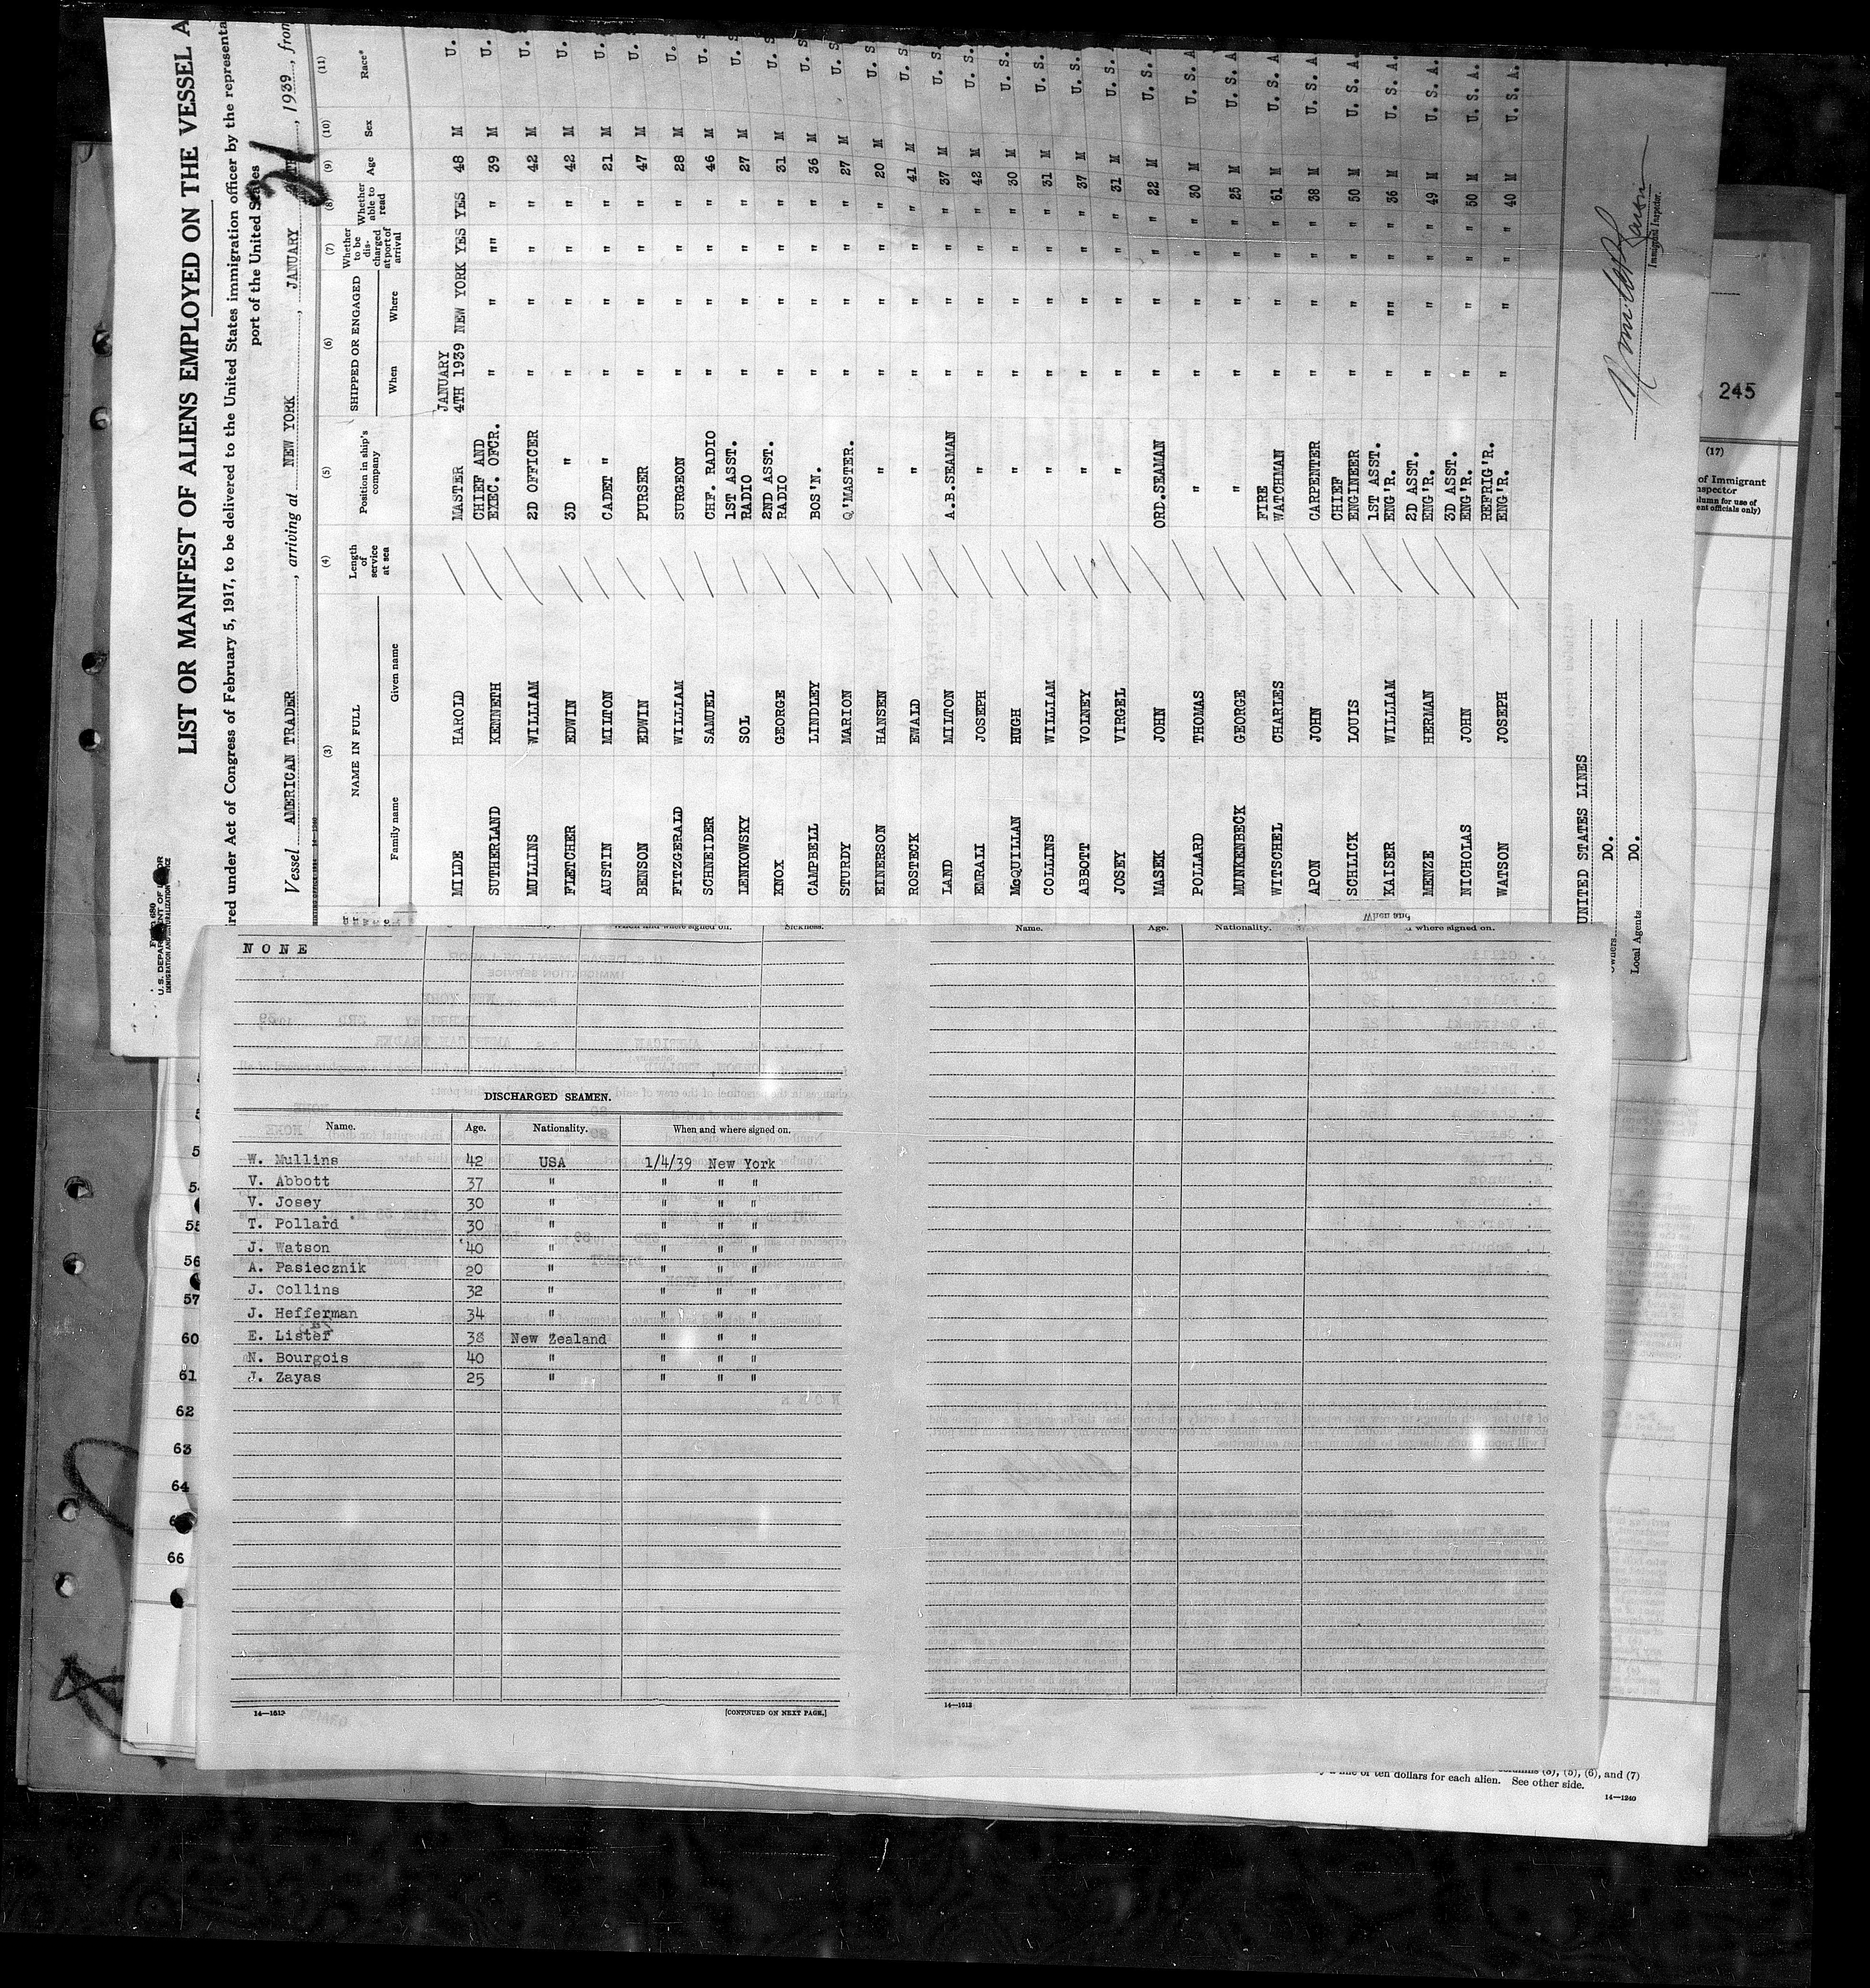 Form 680
U.S. DEPARTMENT OF LABOR
IMMIGRATION AND NATURALIZATION SERVICE
LIST OR MANIFEST OF ALIENS EMPLOYED ON THE VESSEL A
ired under Act of Congress of February 5, 1917, to be delivered to the United States immigration officer by the representa
port of the United States
Vessel AMERICAN TRADER, arriving at NEW YORK, JANUARY, 1939, from
21
(3) (4) (5) (6) (7) (8) (9) (10) (11)
NAME IN FULL
Family name Given name
Length of service at sea
Position in ship's company
SHIPPED OR ENGAGED
When Where
Whether to be discharged at port of arrival
Whether able to read
Age Sex Race*
JANUARY
MILDE HAROLD MASTER 4TH 1939 NEW YORK YES YES 48 M U.
SUTHERLAND KENNETH CHIEF AND EXEC. OFCR. " " "" " 39 M U.
MULLINS WILLIAM 2D OFFICER " " " " 42 M U.
FLETCHER EDWIN 3D " " " " " 42 M U.
AUSTIN MILTON CADET " " " " " 21 M U.
BENSON EDWIN PURSER " " " " 47 M U.
FITZGERALD WILLIAM SURGEON " " " " 28 M U.
SCHNEIDER SAMUEL CHF. RADIO " " " " 46 M U. S
LENKOWSKY SOL 1ST ASST. RADIO " " " " 27 M U. S
KNOX GEORGE 2ND ASST. RADIO " " " " 31 M U. S
CAMPBELL LINDLEY BOS'N. " " " " 36 M U. S
STURDY MARION Q'MASTER. " " " " 27 M U. S
EINERSON HANSEN " " " " " 20 M U. S
ROSTECK EWALD " " " " " 41 M U. S
LAND MILTON A.B.SEAMAN " " " " 37 M U. S
EMRALI JOSEPH " " " " " 42 M U. S.
McQUILLAN HUGH " " " " " 30 M U. S.
COLLINS WILLIAM " " " " " 31 M U. S.
ABBOTT VOLNEY " " " " " 37 M U. S.
JOSEY VIRGEL " " " " " 31 M U. S. A
MASEK JOHN ORD.SEAMAN " " " " 22 M U. S. A
POLLARD THOMAS " " " " " 30 M U. S. A
MUNKENBECK GEORGE " " " " " 25 M U. S. A
WITSCHEL CHARLES FIRE WATCHMAN " " " " 61 M U. S. A
APON JOHN CARPENTER " " " " 38 M U. S. A
SCHLICK LOUIS CHIEF ENGINEER " " " " 50 M U. S. A.
KAISER WILLIAM 1ST ASST. ENG'R. " "" " " 36 M U. S. A.
MENZE HERMAN 2D ASST. ENG'R. " " " " 49 M U. S. A.
NICHOLAS JOHN 3D ASST. ENG'R. " " " " 50 M U. S. A.
WATSON JOSEPH REFRIG'R. ENG'R. " " " " 40 M U. S. A.
UNITED STATES LINES
Owners DO.
Local Agents DO.
Immigrant Inspector.
245
(17)
of Immigrant
nspector
lumn for use of
ent officials only)
When and where signed on. Sickness.
NONE
DISCHARGED SEAMEN.
Name. Age. Nationality. When and where signed on.
W. Mullins 42 USA 1/4/39 New York
V. Abbott 37 " " " "
V. Josey 30 " " " "
T. Pollard 30 " " " "
J. Watson 40 " " " "
A. Pasiecznik 20 " " " "
J. Collins 32 " " " "
J. Hefferman 34 " " " "
E. Lister 38 New Zealand " " "
N. Bourgois 40 " " " "
J. Zayas 25 " " " "
14—1613 [CONTINUED ON NEXT PAGE.]
Name. Age. Nationality. where signed on.
14—1613
55
56
57
60
61
62
63
64
66
columns (3), (5), (6), and (7)
of ten dollars for each alien. See other side.
14—1240